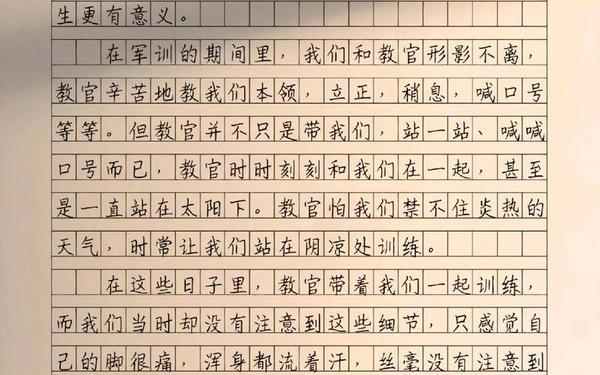 生更有意义。
在军训的期间里，我们和教官形影不离，
教官辛苦地教我们本领，立正，稍息，喊口号
等等。但教官并不只是带我们，站一站、喊喊
口号而已，教官时时刻刻和我们在一起，甚至
是一直站在太阳下。教官怕我们禁不住炎热的
天气，时常让我们站在阴凉处训练。
在这些日子里，教官带着我们一起训练，
而我们当时却没有注意到这些细节，只感觉自
己的脚很痛，浑身都流着汗，丝毫没有注意到